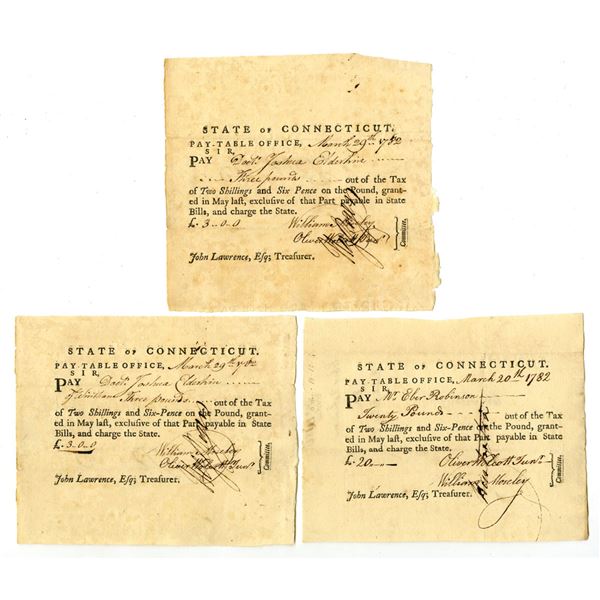 STATE OF CONNECTICUT.
PAY-TABLE OFFICE, March 29th 1782
SIR,
PAY Doctr. Joshua Elderkin
Three pounds out of the Tax
of Two Shillings and Six Pence on the Pound, grant-
ed in May last, exclusive of that Part payable in State
Bills, and charge the State.
£ 3-0-0 William Moseley
Oliver Wolcott Junr.
Committee.
John Lawrence, Esq; Treasurer.
STATE OF CONNECTICUT.
PAY-TABLE OFFICE, March 29th 1782
SIR,
PAY Doctr. Joshua Elderkin
of Windham Three pounds out of the Tax
of Two Shillings and Six-Pence on the Pound, grant-
ed in May last, exclusive of that Part payable in State
Bills, and charge the State.
£ 3-0-0 William Moseley
Oliver Wolcott Junr.
Committee.
John Lawrence, Esq; Treasurer.
STATE OF CONNECTICUT.
PAY-TABLE OFFICE, March 20th 1782
SIR,
PAY Mr. Eber Robinson
Twenty Pounds out of the Tax
of Two Shillings and Six-Pence on the Pound, grant-
ed in May last, exclusive of that Part payable in State
Bills, and charge the State.
£ 20 Oliver Wolcott Junr.
William Moseley
Committee.
John Lawrence, Esq; Treasurer.